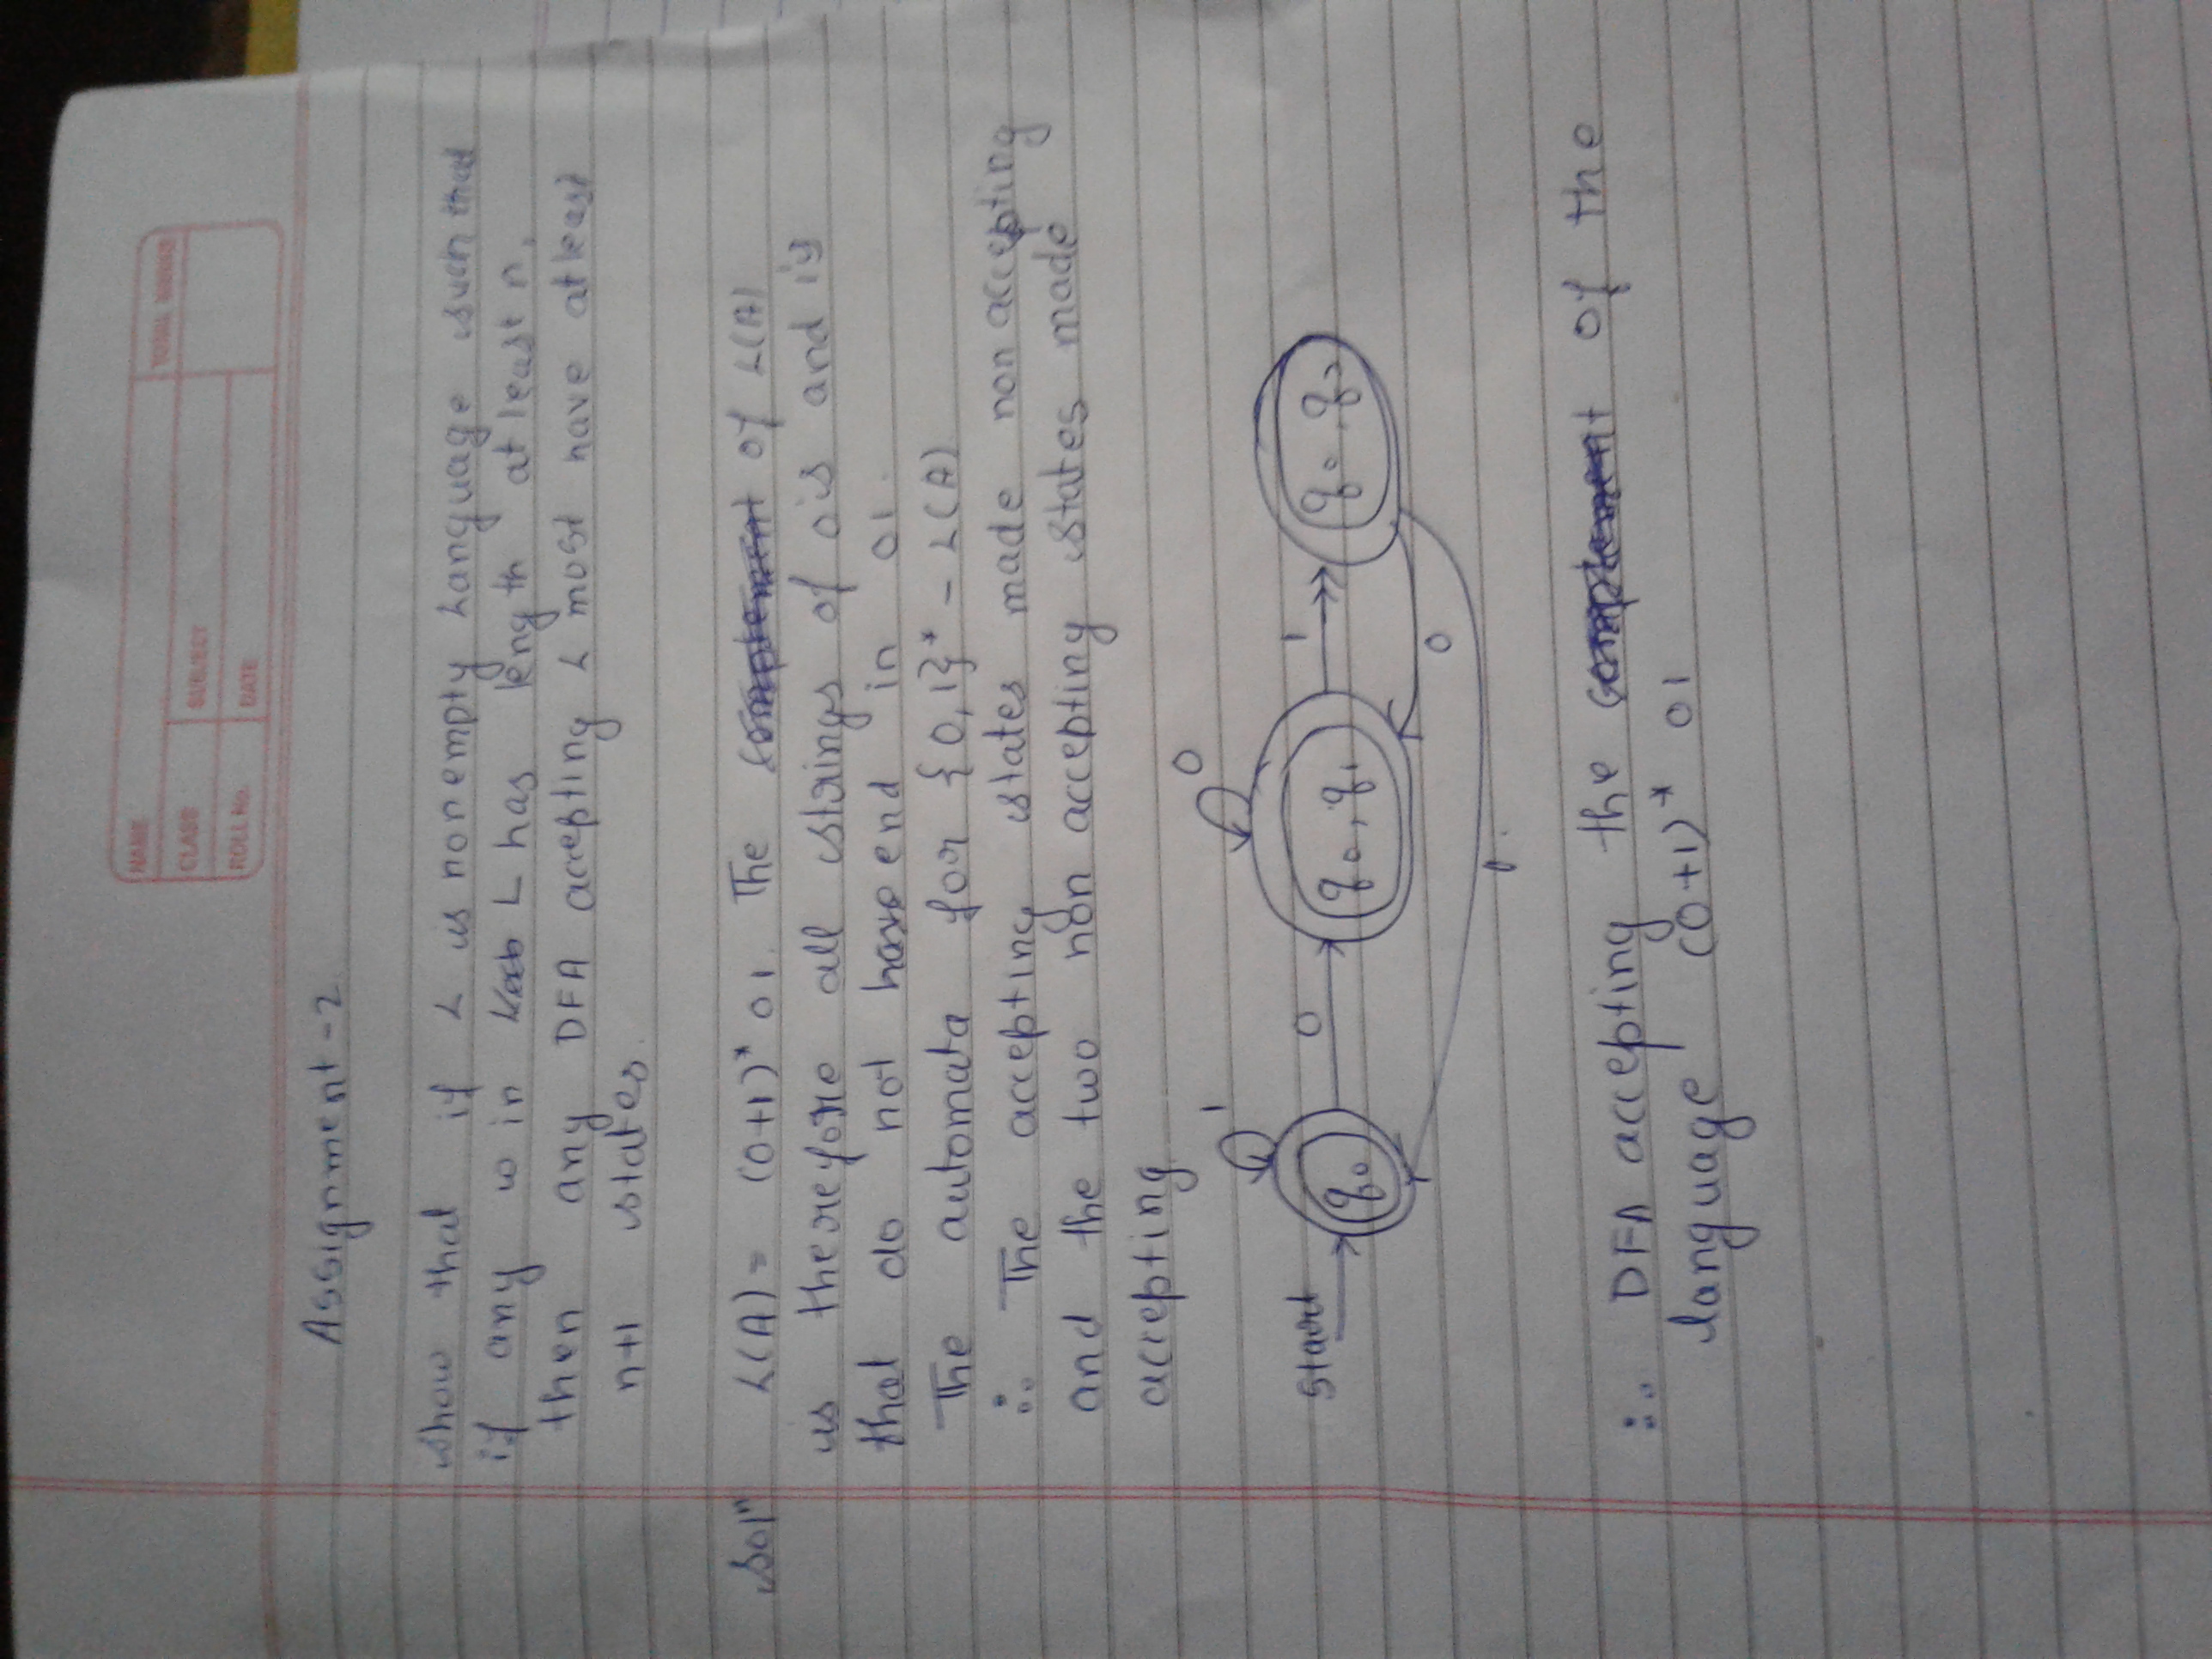 NAME
TOTAL MARKS
CLASS
SUBJECT
ROLL No.
DATE
Assignment-2
show that if L is nonempty Language such that
if any w in L has length atleast n,
then any DFA accepting L most have atleast
n+1 states.
Solⁿ L(A) = (0+1)* 01. The complement of L(A)
is therefore all strings of 0's and 1's
that do not have end in 01.
The automata for {0,1}* - L(A)
∴ The accepting states made non accepting
and the two non accepting states made
accepting
1 0
start q₀ 0 q₀, q₁ 1 q₀, q₂
0
1
∴ DFA accepting the complement of the
language (0+1)* 01